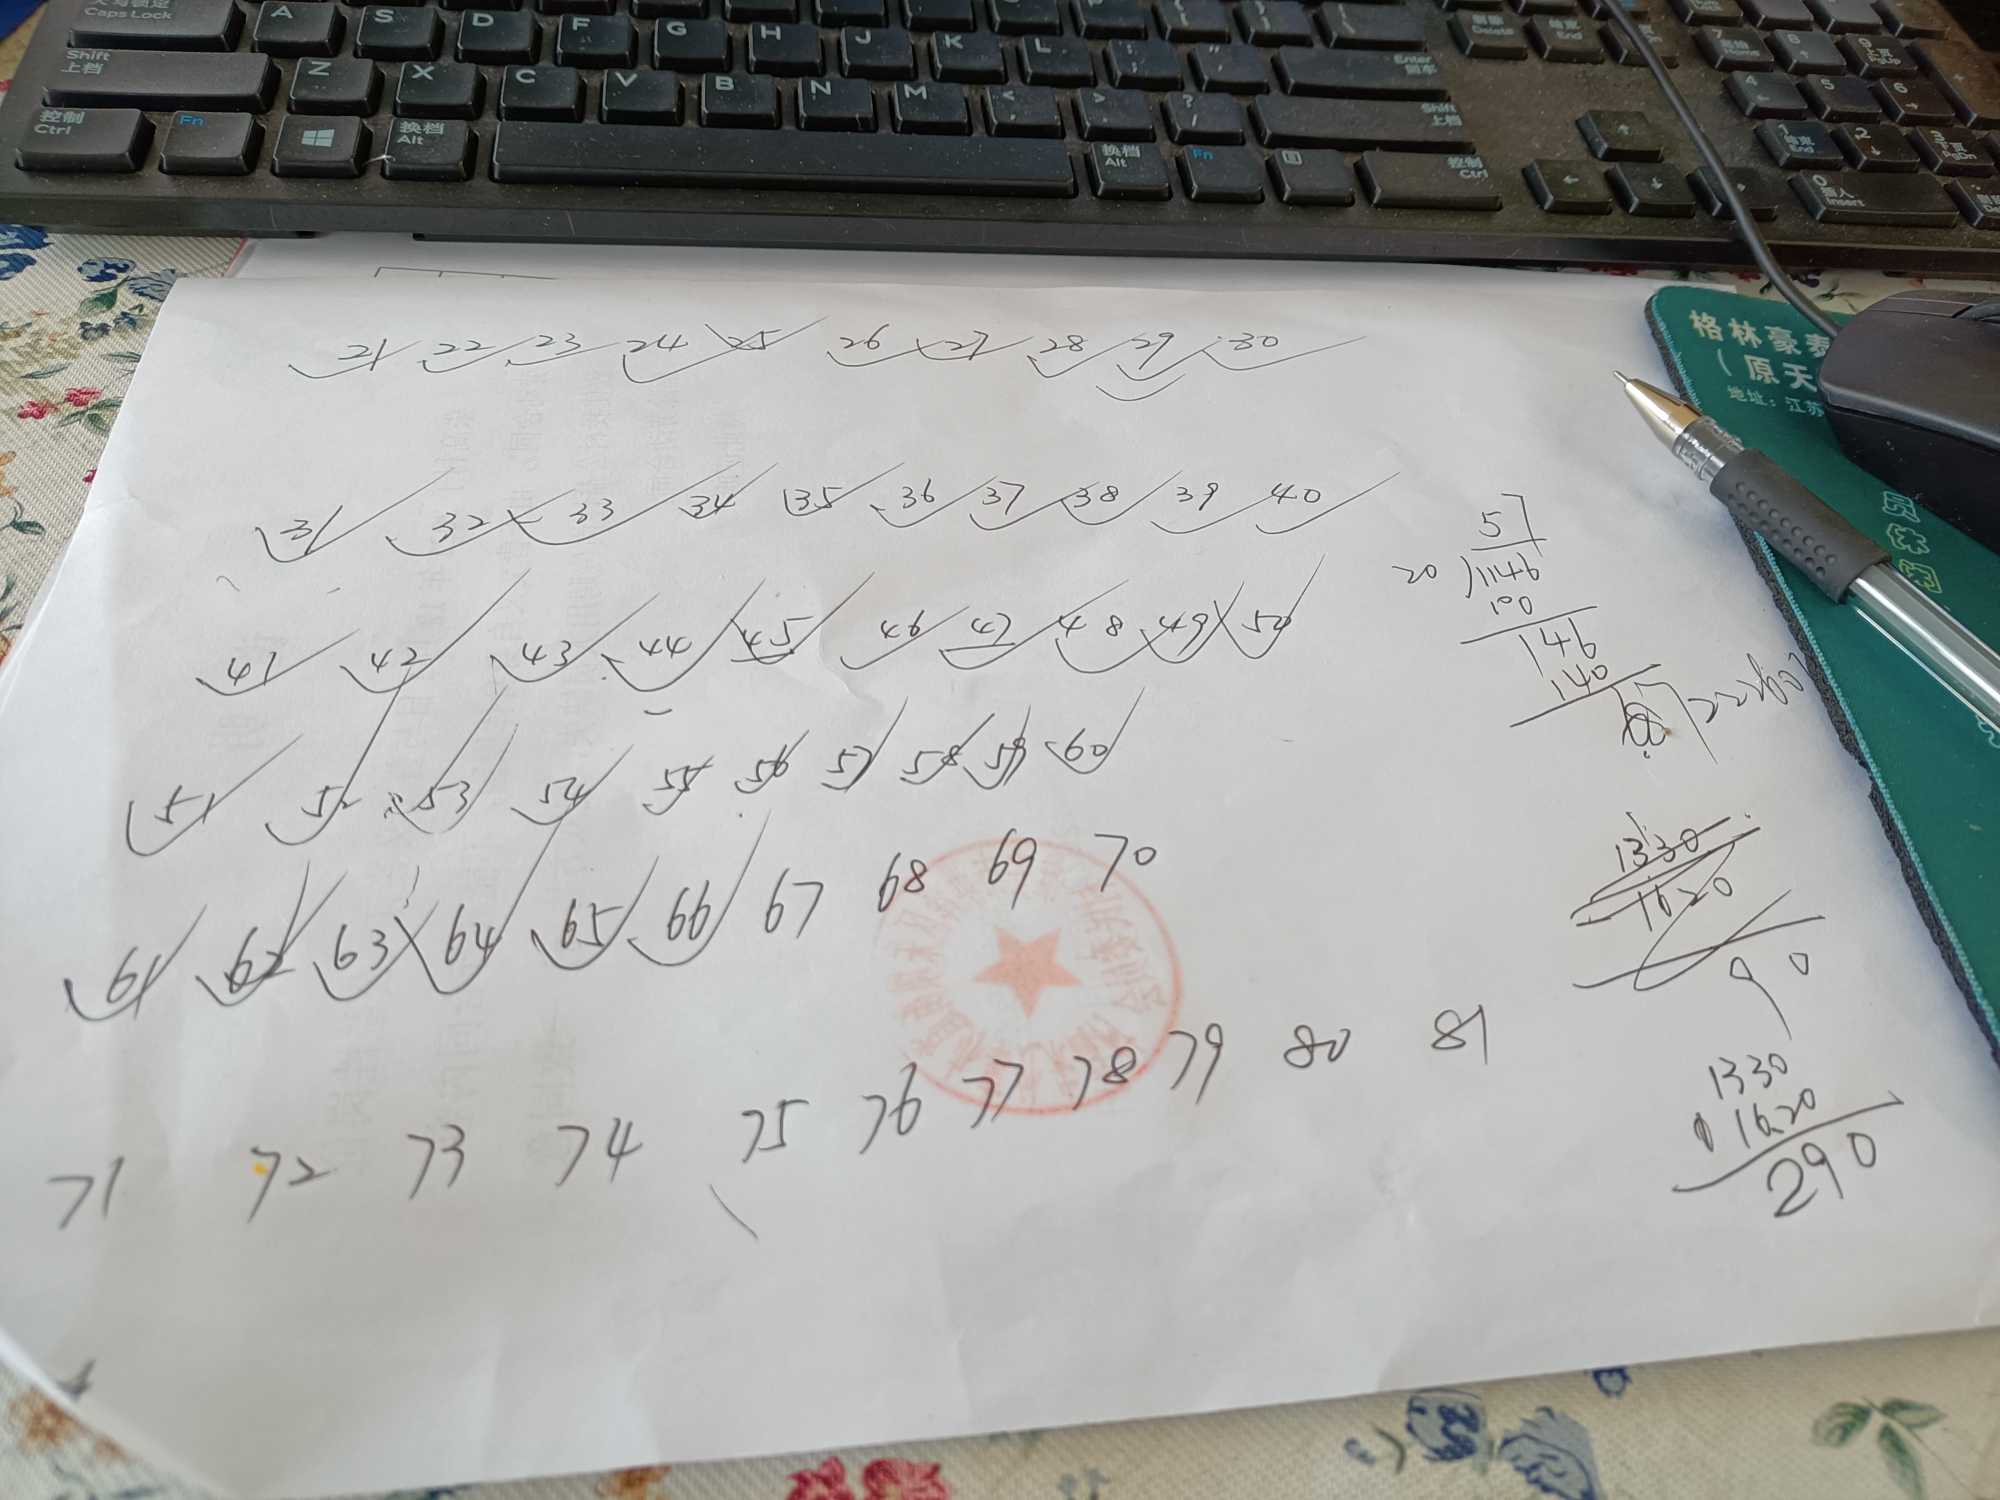 Caps Lock A S D F G H J K L Enter
Shift 上档 Z X C V B N M Shift 上档
控制 Ctrl Fn 换档 Alt 换档 Alt Fn 控制 Ctrl
Delete End
7 8 9 PgUp
4 5 6
1 End 2 3 PgDn
0 Insert
格林豪泰
（原天
地址：江苏
21 22 23 24 25 26 27 28 29 30
31 32 33 34 35 36 37 38 39 40
41 42 43 44 45 46 47 48 49 50
51 52 53 54 55 56 57 58 59 60
61 62 63 64 65 66 67 68 69 70
71 72 73 74 75 76 77 78 79 80 81
57
20 1146
100
146
140
1330
1620
90
1330
1620
290